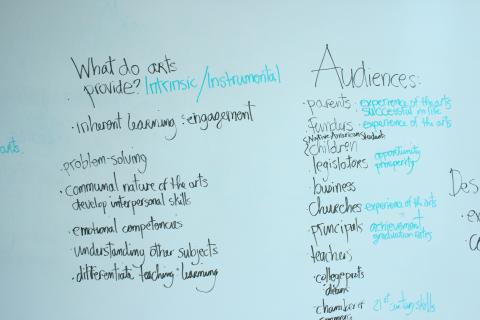 What do arts
provide? Intrinsic/Instrumental
· inherent learning : engagement
arts
· problem-solving
· communal nature of the arts
develop interpersonal skills
· emotional competencies
· understanding other subjects
· differentiate teaching : learning
Audiences:
· parents · experience of the arts
successful in life
funders · experience of the arts
Native American students
children
legislators opportunity
prosperity
· business
churches experience of the arts
· principals achievement
graduation rates
· teachers
· college profs
deans
· chamber of 21st century skills
commerce
Des